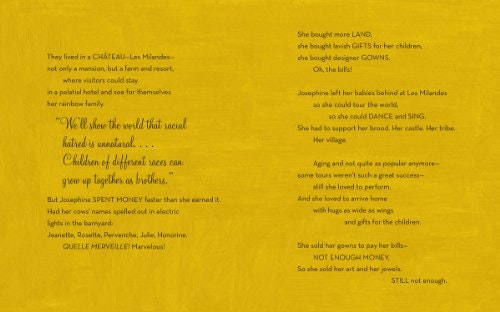 They lived in a CHÂTEAU—Les Milandes—
not only a mansion, but a farm and resort,
where visitors could stay
in a palatial hotel and see for themselves
her rainbow family.
"We'll show the world that racial
hatred is unnatural. . . .
Children of different races can
grow up together as brothers."
But Josephine SPENT MONEY faster than she earned it.
Had her cows' names spelled out in electric
lights in the barnyard:
Jeanette, Rosette, Pervenche, Julie, Honorine.
QUELLE MERVEILLE! Marvelous!
She bought more LAND,
she bought lavish GIFTS for her children,
she bought designer GOWNS.
Oh, the bills!
Josephine left her babies behind at Les Milandes
so she could tour the world,
so she could DANCE and SING.
She had to support her brood. Her castle. Her tribe.
Her village.
Aging and not quite as popular anymore—
some tours weren't such a great success—
still she loved to perform.
And she loved to arrive home
with hugs as wide as wings
and gifts for the children.
She sold her gowns to pay her bills—
NOT ENOUGH MONEY.
So she sold her art and her jewels.
STILL not enough.